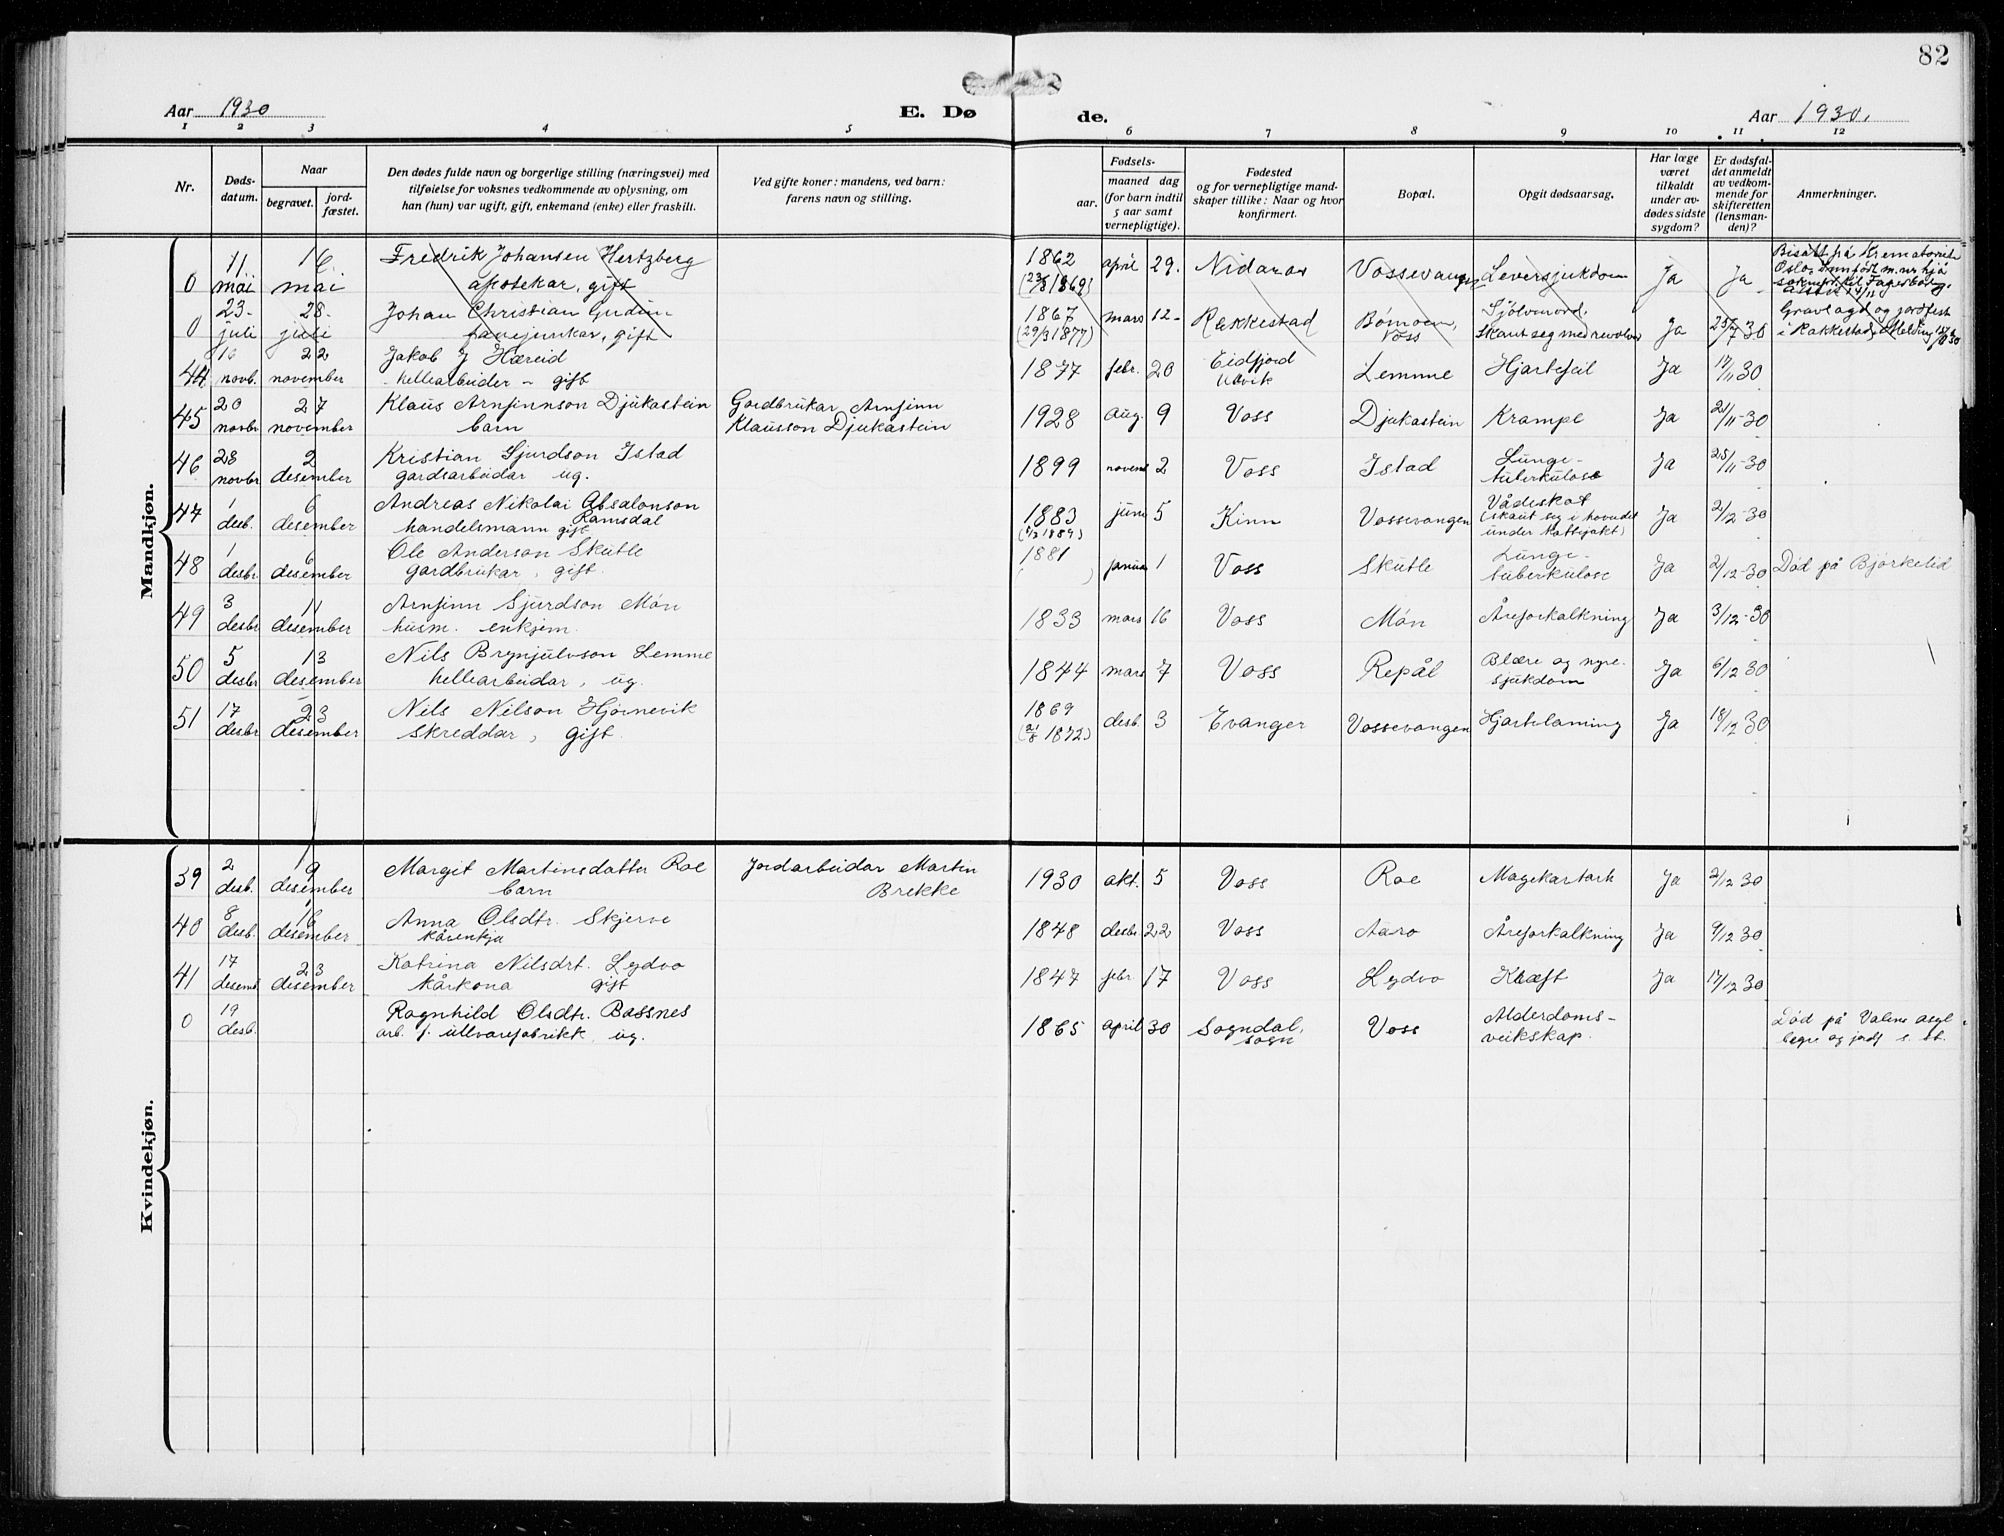 82
Aar 1930
E. Dø de.
Aar 1930.
1 2 3 4 5 6 7 8 9 10 11 12
Nr.
Døds-
datum.
Naar
begravet.
jord-
fæstet.
Den dødes fulde navn og borgerlige stilling (næringsvei) med
tilføielse for voksnes vedkommende av oplysning, om
han (hun) var ugift, gift, enkemand (enke) eller fraskilt.
Ved gifte koner: mandens, ved barn:
farens navn og stilling.
Fødsels-
aar.
maaned dag
(for barn indtil
5 aar samt
vernepligtige).
Fødested
og for vernepligtige mand-
skaper tillike: Naar og hvor
konfirmert.
Bopæl.
Opgit dødsaarsag.
Har læge
været
tilkaldt
under av-
dødes sidste
sygdom?
Er dødsfal-
det anmeldt
av vedkom-
mende for
skifteretten
(lensman-
den)?
Anmerkninger.
Mandkjøn.
0 11 mai 16 mai Fredrik Johansen Hertzberg
apotekar, gift
1862 april 29. Nidaros Vossevangen Leversjukdom Ja Ja
Bisatt på Krematoriet
Oslo,
0 23- juli 28- juli Johan Christian Gudim
fanejunkar, gift
1867 (29/3 1877) mars 12- Rakkestad Bømoen, Voss Sjølvmord,
Skaut seg med revolver Ja 25/7 30
Gravlagd og jordfest
i Rakkestad,
44 16 novb. 22 november Jakob J Hæreid
hellearbeider - gift
1877 febr. 20 Eidfjord Ulvik Lemme Hjartefeil Ja 17/11 30
45 20 novbr 27 november Klaus Arnfinnson Djukastein
barn
Gardbrukar Arnfinn
Klausson Djukastein
1928 aug. 9 Voss Djukastein Krampe Ja 21/11-30
46 23 novbr 2 desember Kristian Sjurdson Istad
gardsarbeidar ug.
1899 novem 2 Voss Istad Lunge-
tuberkulose Ja 25/11-30
47 1 desb. 6 desember Andreas Nikolai Absalonson
Ramsdal
handelsmann gift
1883 juni 5 Kinn Vossevangen Vådeskot
(skaut seg i hovudet
under kattejakt) Ja 2/12-30
48 1 desbr 6 desember Ole Anderson Skutle
gardbrukar, gift.
1881 januar 1 Voss Skutle Lunge-
tuberkulose Ja 2/12-30 Død på Bjørkelid
49 3 desbr 11 desember Arnfinn Sjurdson Món
husm. enkjem.
1833 mars 16 Voss Món Åreforkalkning Ja 3/12-30
50 5 desbr 13 desember Nils Brynjulvson Lemme
hellearbeidar, ug.
1844 mars 7 Voss Repål Blære og nyre-
sjukdom Ja 6/12 30
51 17 desbr 23 desember Nils Nilson Hjørnevik
skreddar, gift.
1869 (2/8 1872) desb. 3 Evanger Vossevangen Hjartelaming Ja 18/12 30
Kvindekjøn.
39 2 desb. 9 desember Margit Martinsdatter Roe
barn
Jordarbeidar Martin
Brekke
1930 okt. 5 Voss Roe Magekartarh Ja 2/12 30
40 8 desb. 16 desember Anna Olsdtr. Skjerve
kårenkja
1848 desbr 22 Voss Aaro Åreforkalkning Ja 9/12 30
41 17 desemb 23 desember Katrina Nilsdrt. Lydvo
kårkona gift
1847 febr 17 Voss Lydvo Kræft Ja 17/12 30
0 19 desb. Ragnhild Olsdtr. Bassnes
arb. f. ullvarefabrikk, ug.
1865 april 30 Sogndal, Sogn Voss Alderdoms-
veikskap.
Død på Valens asyl
begr og jordf s. st.